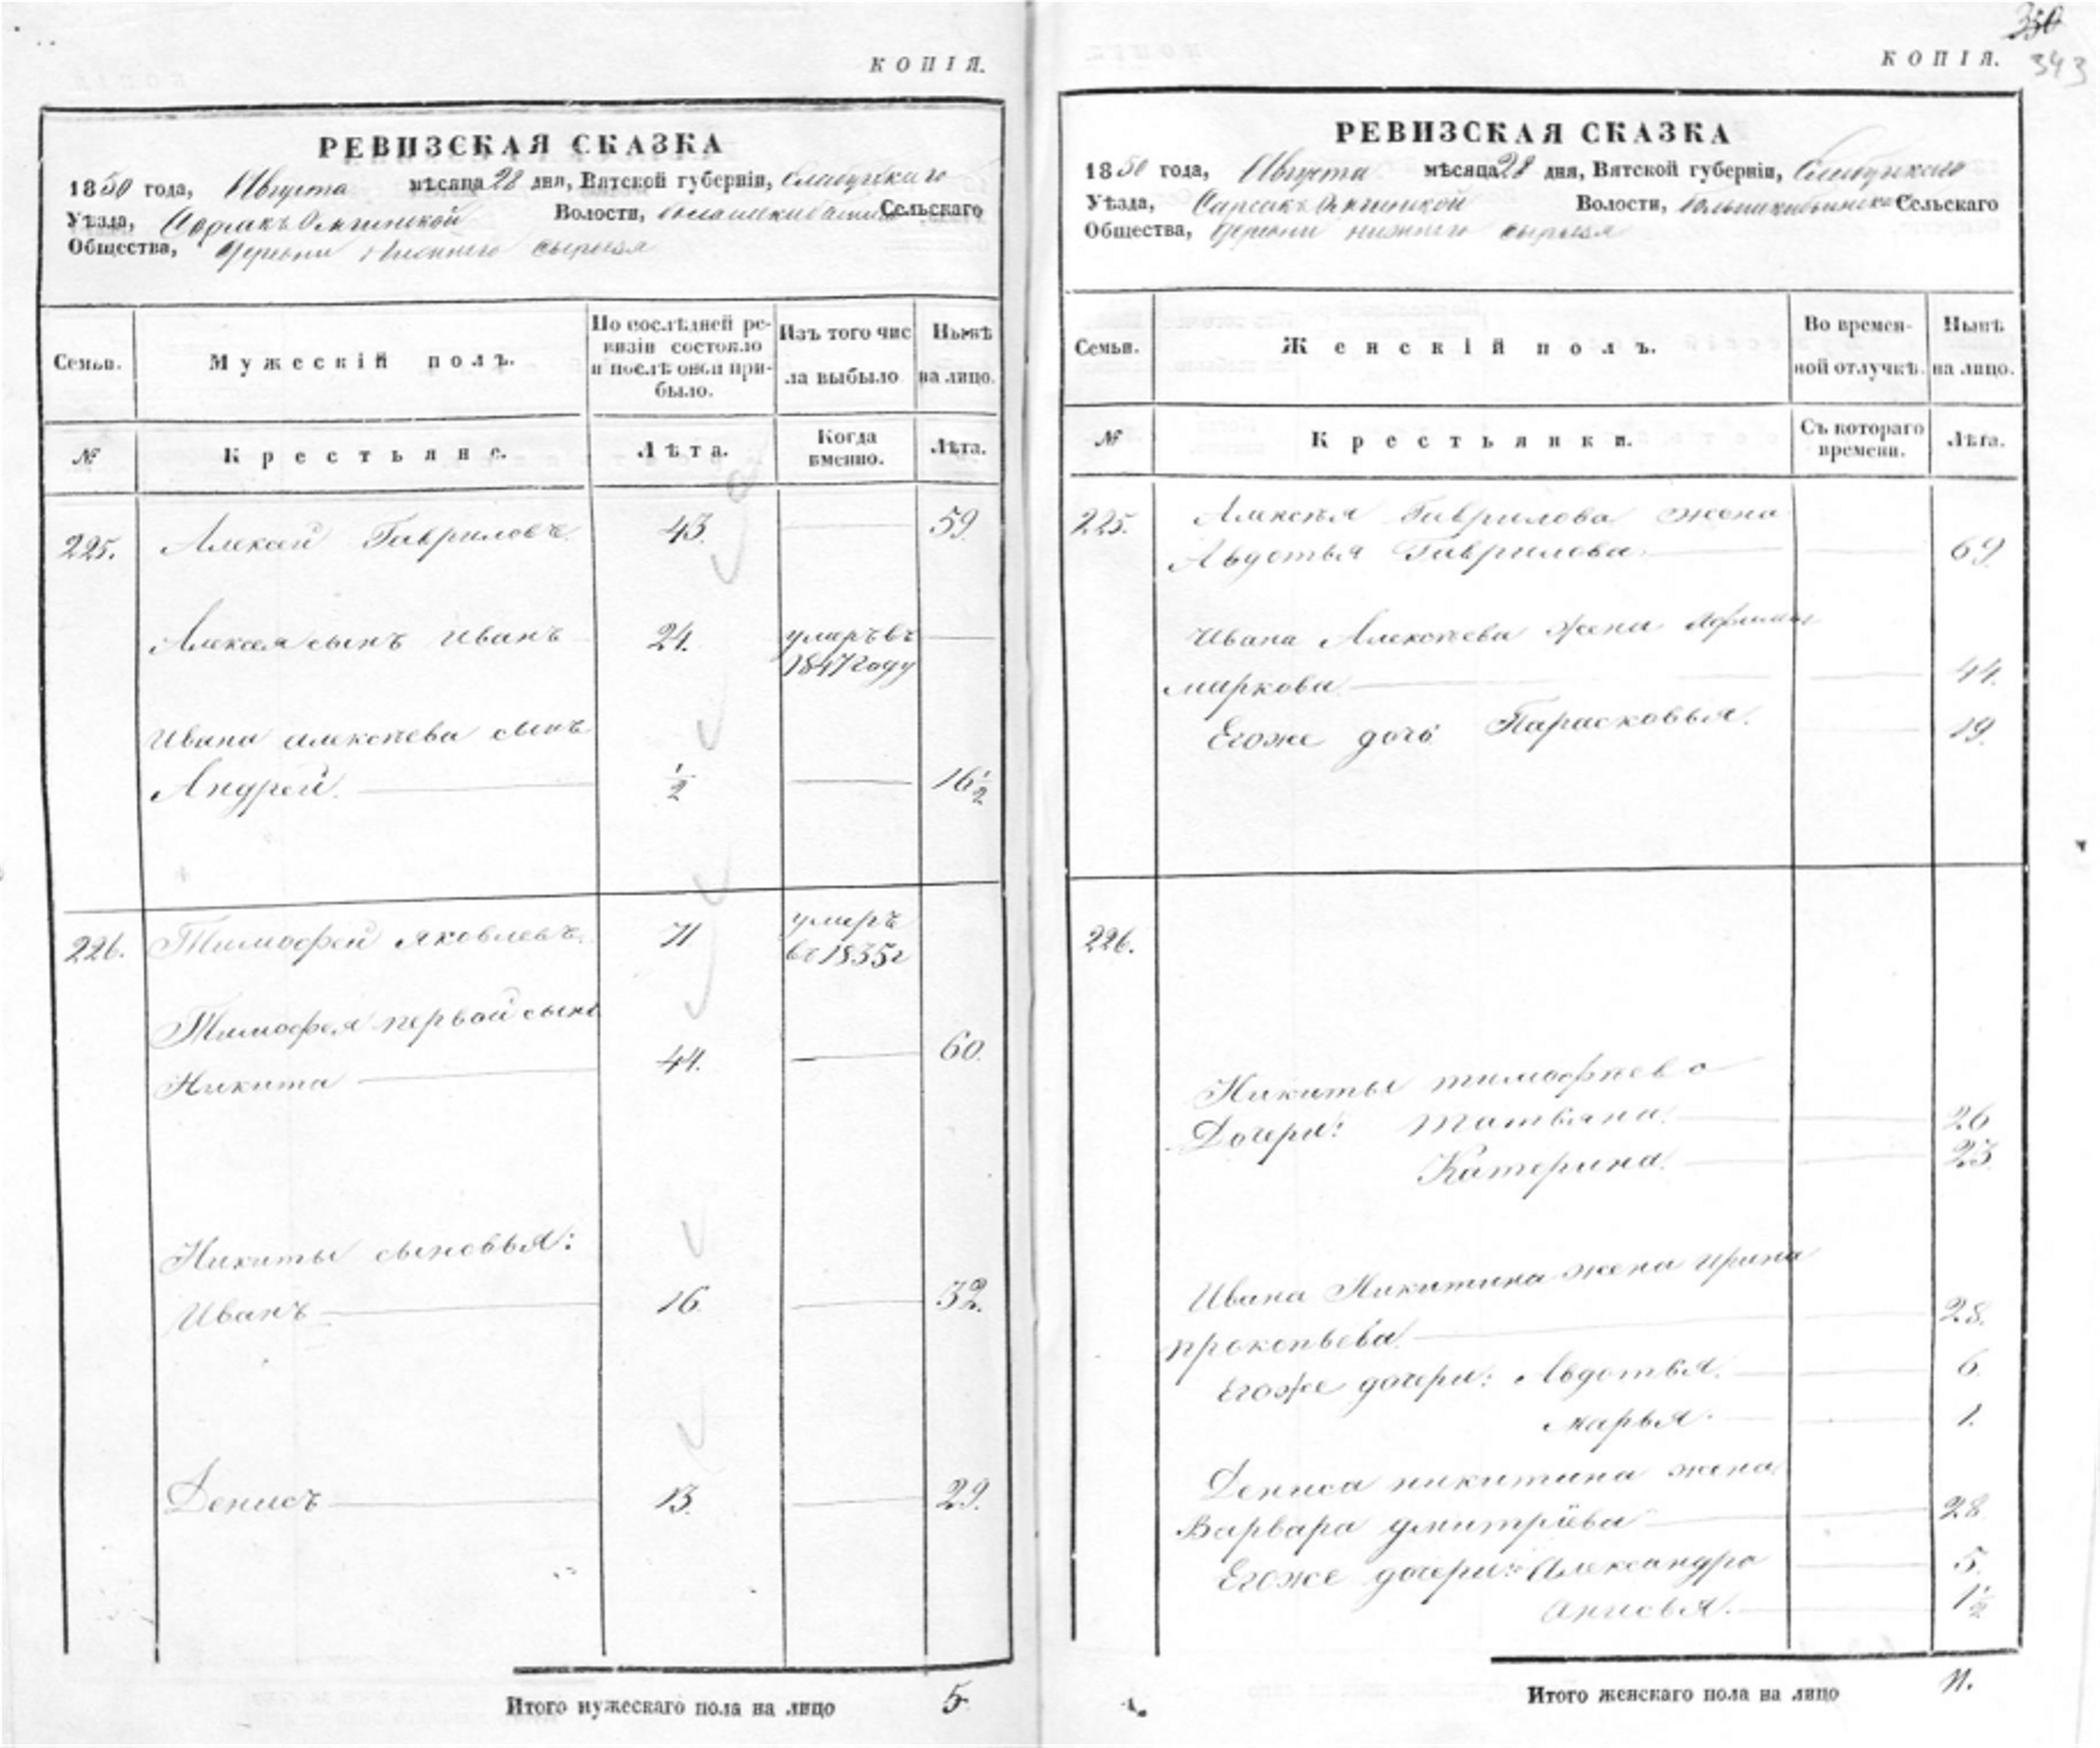 КОПІЯ.
РЕВИЗСКАЯ СКАЗКА
1850 года, Августа мѣсяца 28 дня, Вятской губерніи, Елабужскаго
Уѣзда, Волости, Сельскаго
Общества, Деревни Нижняго Сырьеза
Семьи. Мужескій полъ. По послѣдней ре-визіи состояло и послѣ оной при-было. Изъ того чис ла выбыло Нынѣ на лицо.
№ Крестьяне. Лѣта. Когда именно. Лѣта.
225. Алексѣй Гавриловъ 43. 59.
Алексея сынъ Иванъ 24. умеръ въ
1847 году
Ивана алексѣева сынъ
Андрей. ½ 16½
226. Тимофей яковлевъ. 71 умеръ
въ 1835 г
Тимофея первой сынъ
Никита 44. 60.
Никиты сыновья:
Иванъ 16. 32.
Денисъ 13. 29.
Итого мужескаго пола на лицо 5.
350
343
КОПІЯ.
РЕВИЗСКАЯ СКАЗКА
1850 года, Августа мѣсяца 28 дня, Вятской губерніи, Елабужскаго
Уѣзда, Волости, Сельскаго
Общества, Деревни нижняго Сырьеза
Семьи. Женскій полъ. Во времен-ной отлучкѣ. Нынѣ на лицо.
№ Крестьянки. Съ котораго времени. Лѣта.
225. Алексѣя Гаврилова жена
Авдотья Гаврилова. 69.
Ивана Алексѣева жена
маркова 44.
Егоже дочь Парасковья. 19.
226.
Никиты тимофѣева
Дочери: татьяна. 26
Катерина. 23
Ивана Никитина жена ирина
прокопьева 28.
Егоже дочери: Авдотья. 6.
марья. 1.
Дениса никитина жена
Варвара дмитріева 28
Егоже дочери: Александра 5.
анисья. 1½
Итого женскаго пола на лицо 11.